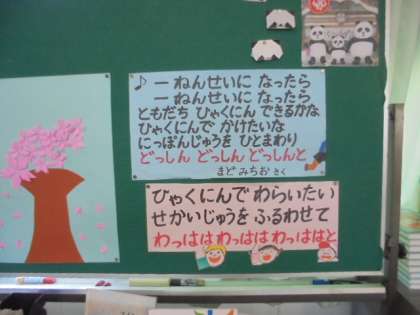 ♪ 一ねんせいに なったら
一ねんせいに なったら
ともだち ひゃくにん できるかな
ひゃくにんで かけたいな
にっぽんじゅうを ひとまわり
どっしん どっしん どっしんと
まど みちお さく
ひゃくにんで わらいたい
せかいじゅうを ふるわせて
わっはは わっはは わっははと